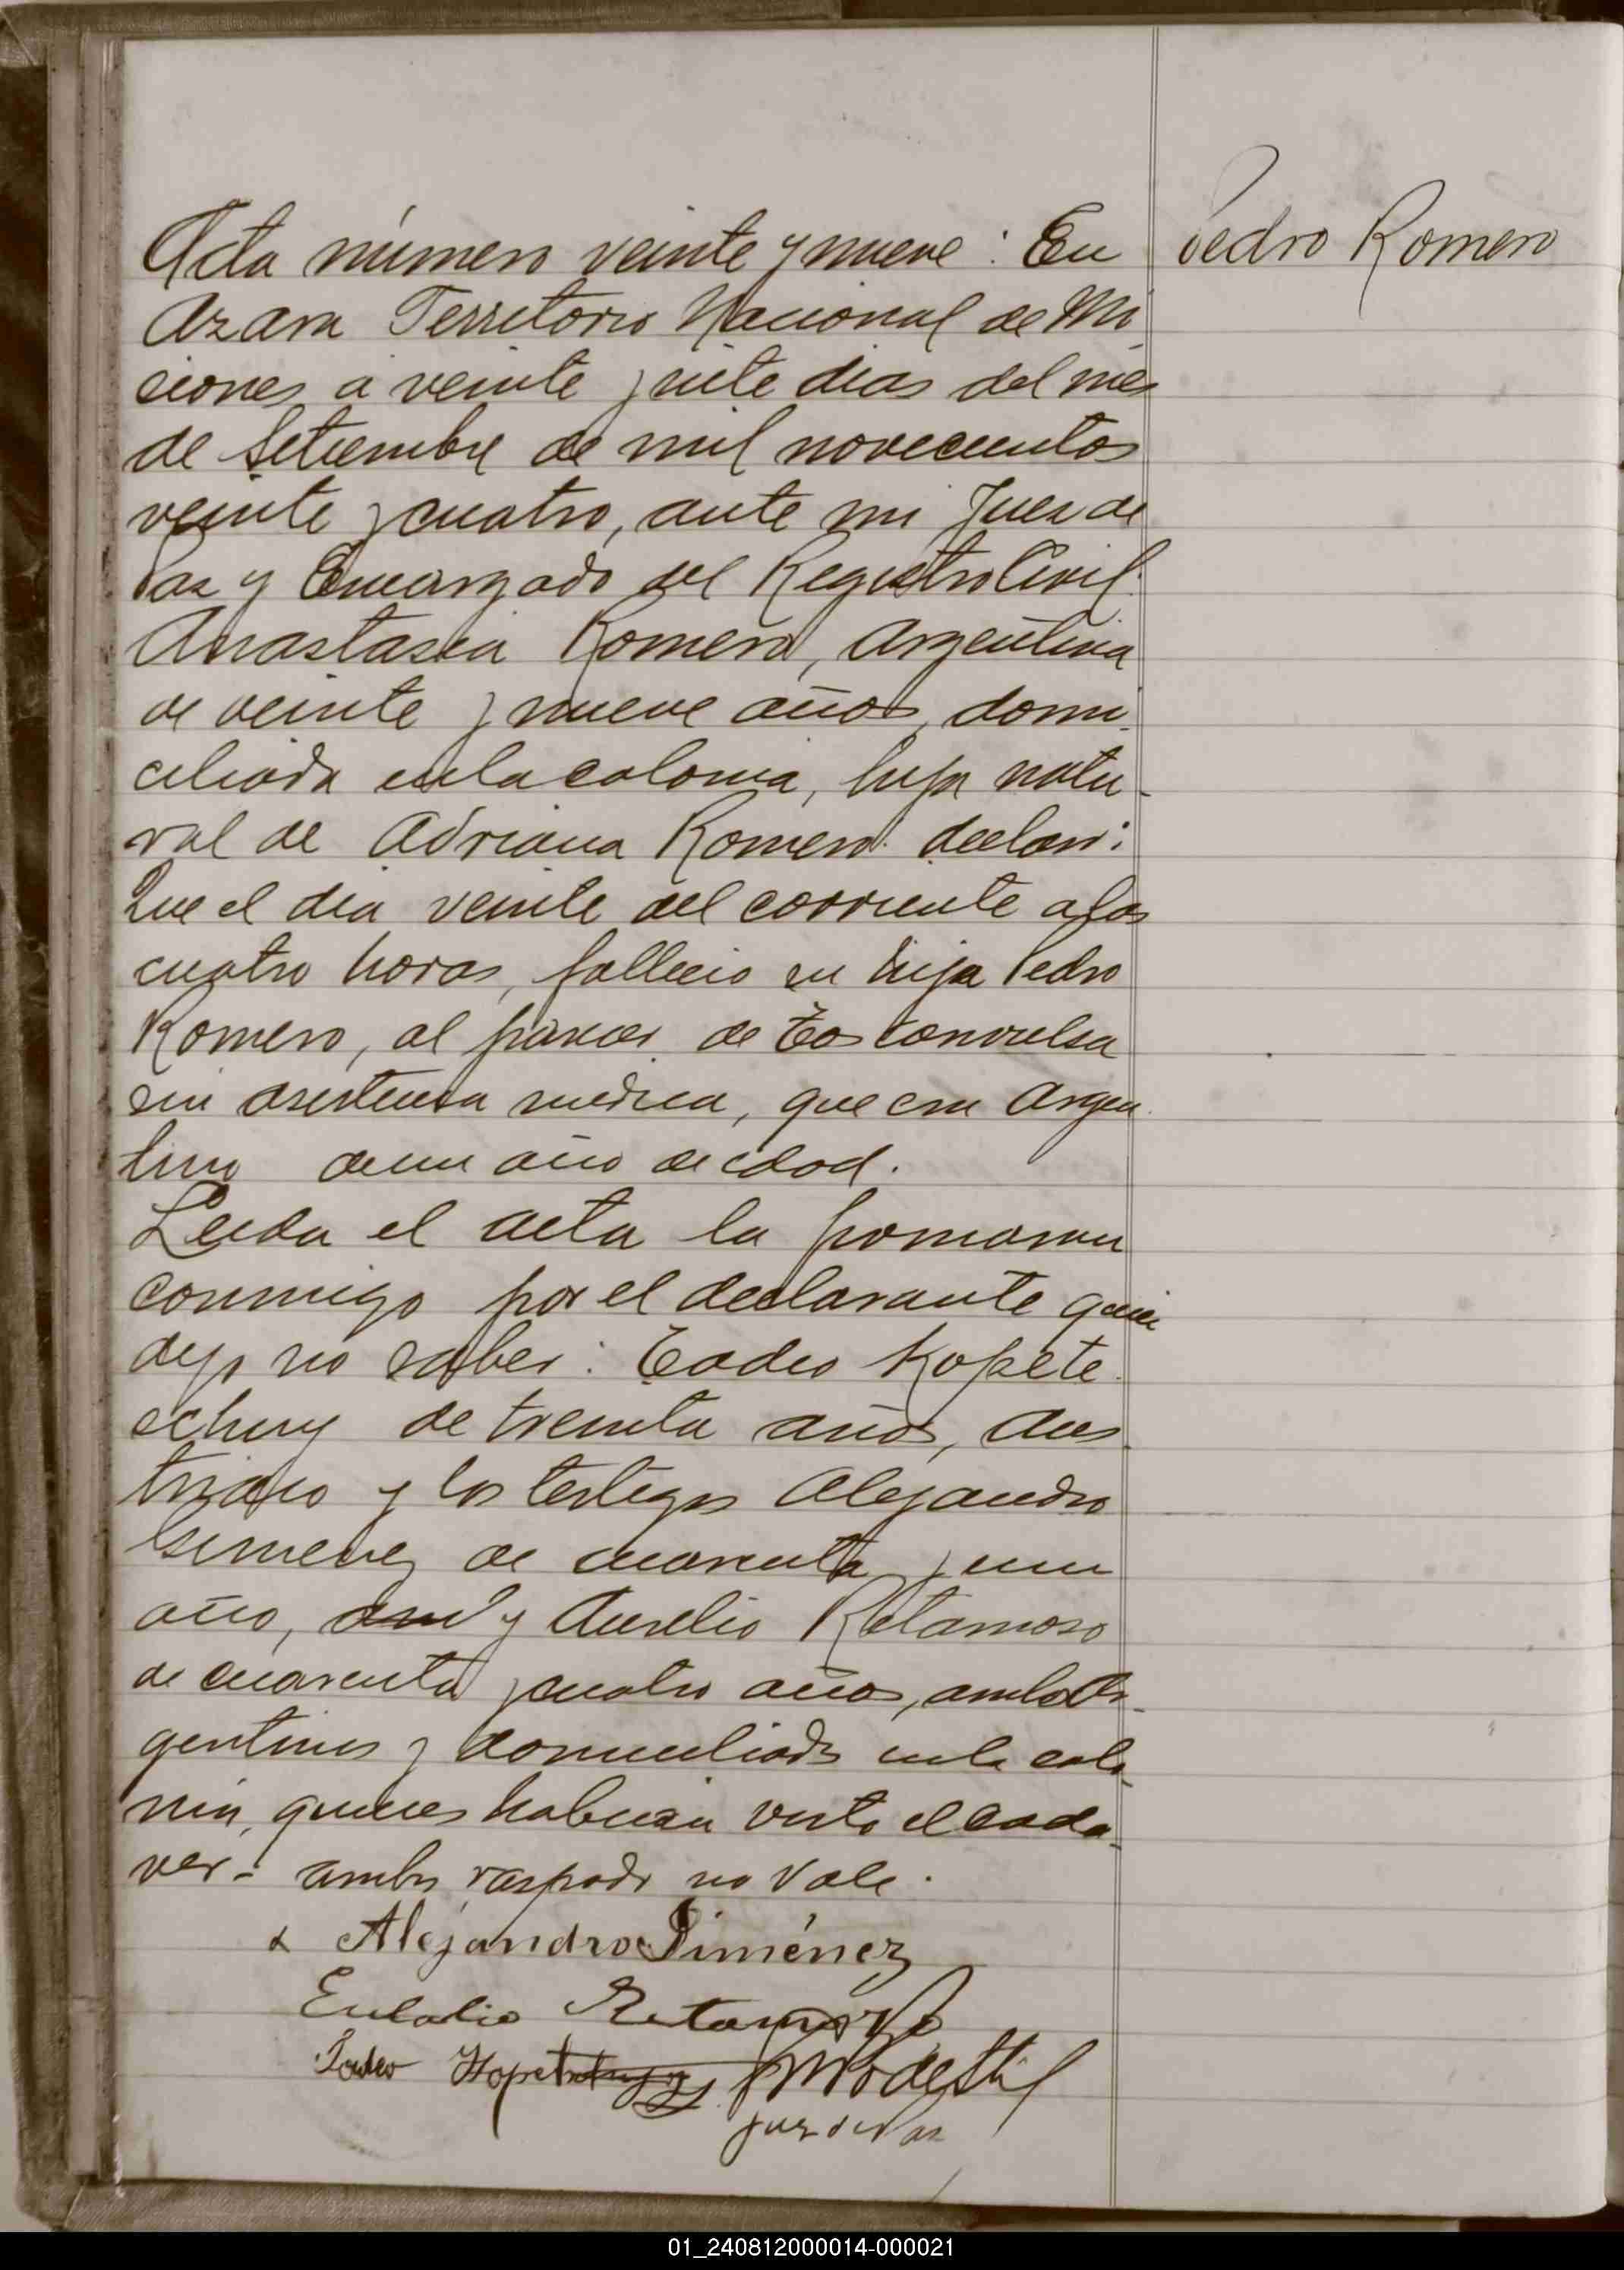 Acta número veinte y nueve : En
Pedro Romero
Azara Territorio Nacional de Mi
siones a veinte y siete dias del mes
de Setiembre de mil novecientos
veinte y cuatro, ante mi Juez de
Paz y Encargado del Registro Civil.
Anastasia Romero, Argentina
de veinte y nueve años, domi-
ciliada en la colonia, hija natu-
ral de Adriana Romero. declaró:
Que el dia veinte del corriente a las
cuatro horas, fallecio su hijo Pedro
Romero, al parecer de tos convulsa
sin asistencia medica, que era Argen-
tino de un año de edad.
Leida el acta la firmaron
conmigo por el declarante quien
dejo no saber : Tadeo Kopete
schuy de treinta años, Aus-
triaco y los testigos Alejandro
Gimenez de cuarenta y un
año, y Aurelio Retamoso
de cuarenta y cuatro años, ambos Ar-
gentinos y domiciliados en la colo-
nia, quienes habrian visto el cada-
ver.- ambos raspado no vale.
Alejandro Jiménez
Eulalio Retamozo
Tadeo
Juez de Paz
01_240812000014-000021